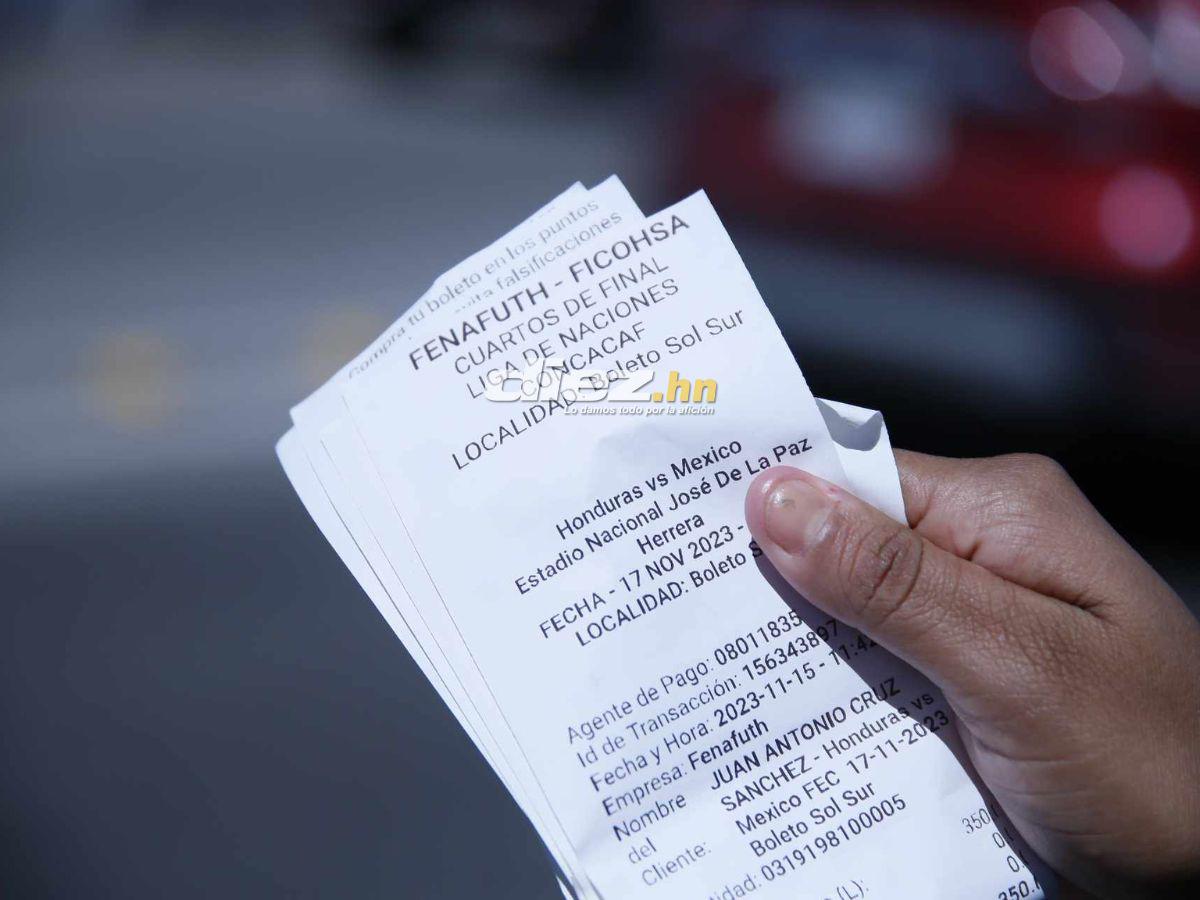 Compra tu boleto en los puntos
evita falsificaciones
FENAFUTH - FICOHSA
CUARTOS DE FINAL
LIGA DE NACIONES
CONCACAF
LOCALIDAD: Boleto Sol Sur
diez.hn
Lo damos todo por la afición
Honduras vs Mexico
Estadio Nacional José De La Paz
Herrera
FECHA - 17 NOV 2023 -
LOCALIDAD: Boleto S
Agente de Pago: 08011835
Id de Transacción: 156343897
Fecha y Hora: 2023-11-15 - 11:42
Empresa: Fenafuth
Nombre JUAN ANTONIO CRUZ
del SANCHEZ - Honduras vs
Cliente: Mexico FEC 17-11-2023
Boleto Sol Sur
idad: 0319198100005
(L): 350.
0.
0.
350.